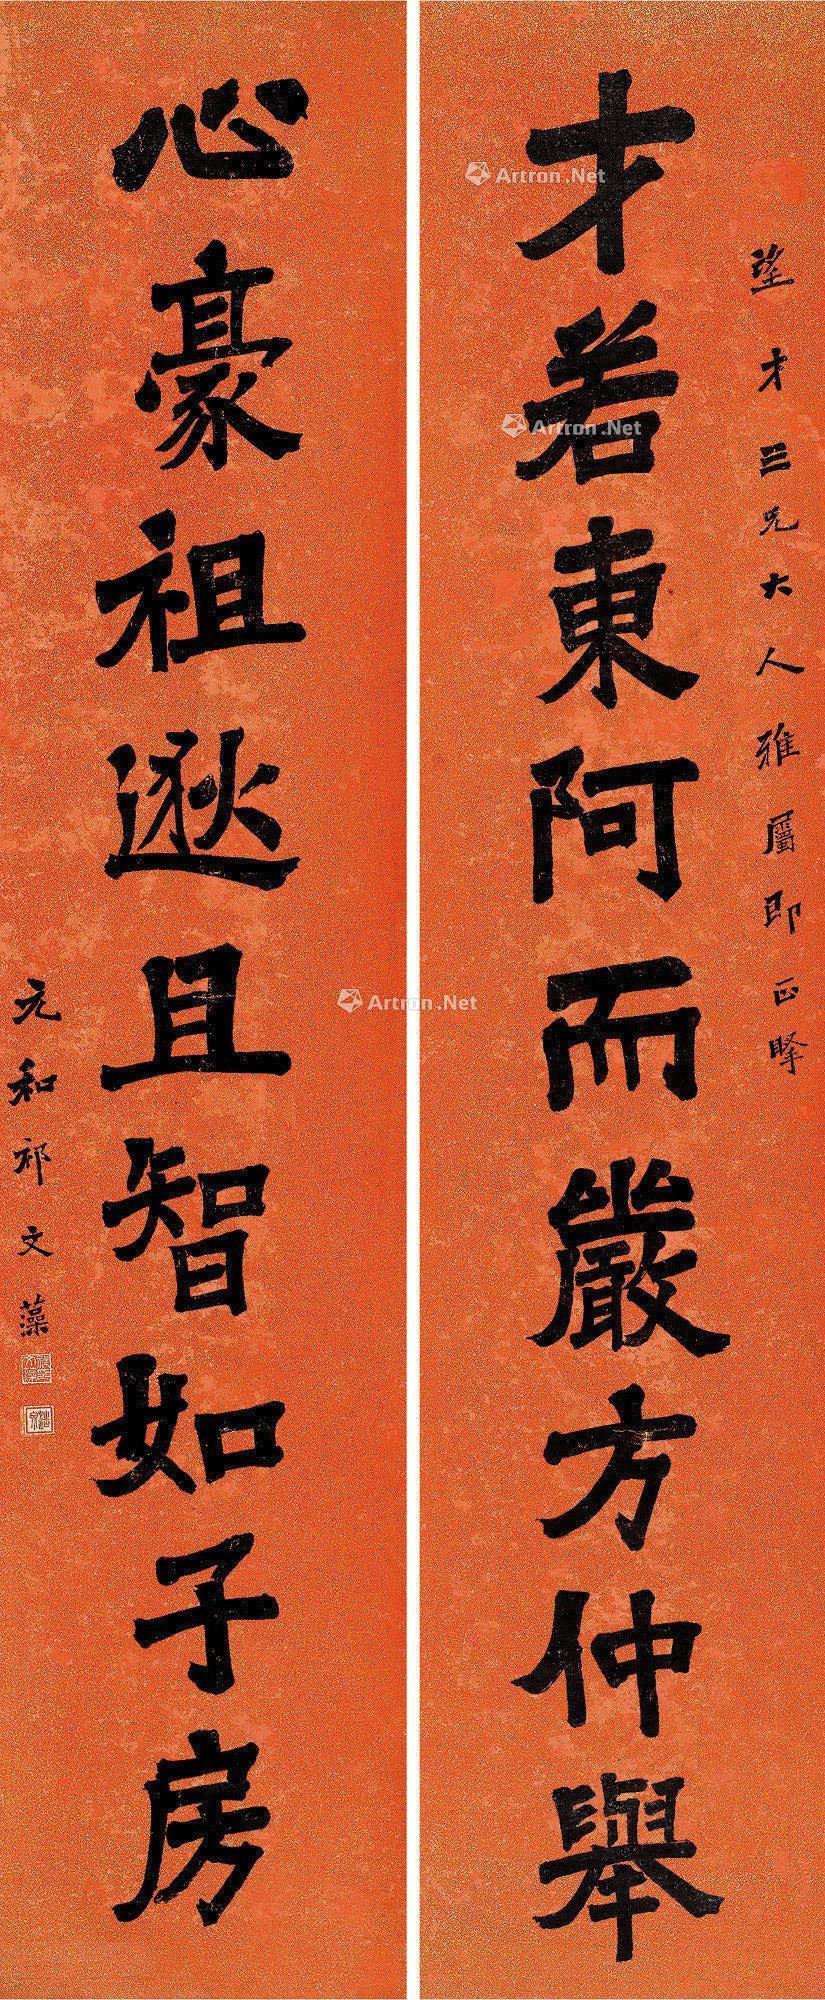 望才三兄大人雅屬即正擊
才若東阿而嚴方仲舉
心豪祖逖且智如子房
元和祁文藻
Artron.Net
Artron.Net
Artron.Net